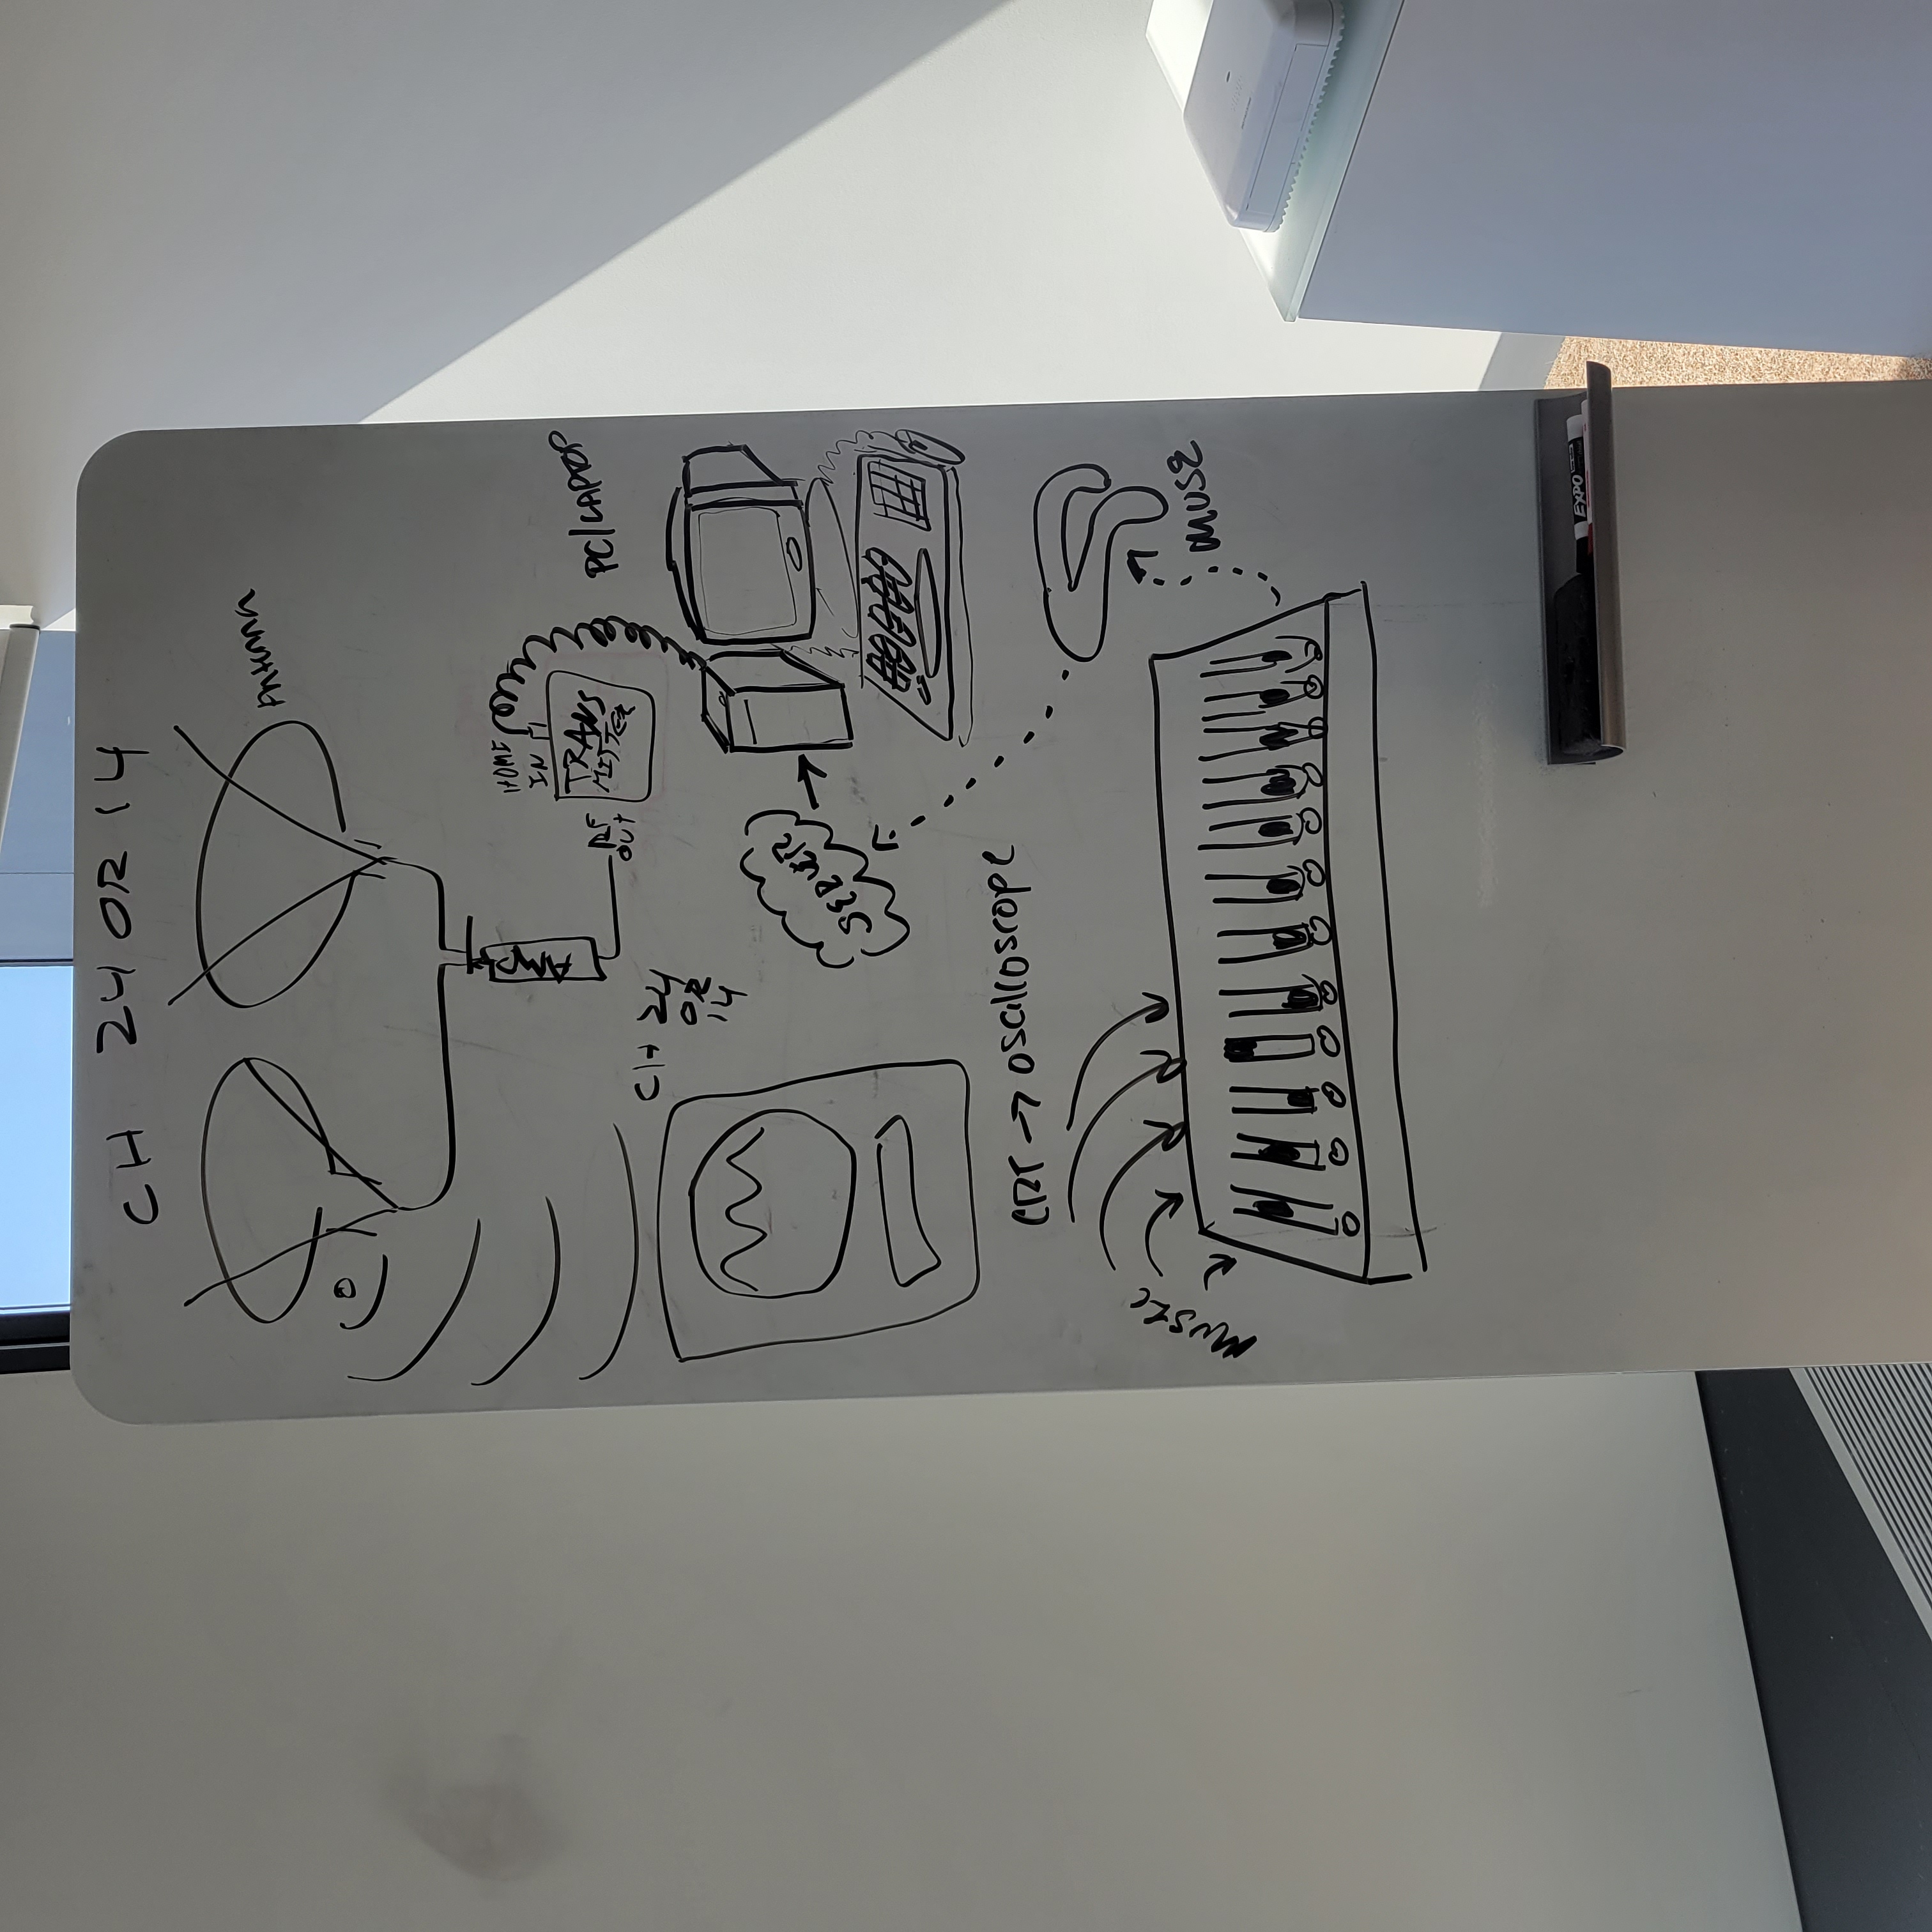 CH 24 OR 14
Antenna
AMP
HOME
IN
TRANS
MITTER
RF
OUT
PC/LAPTOP
CH 24
OR
14
SERVER
CRT → oscilloscope
MUSIC
MUSE
EXPO